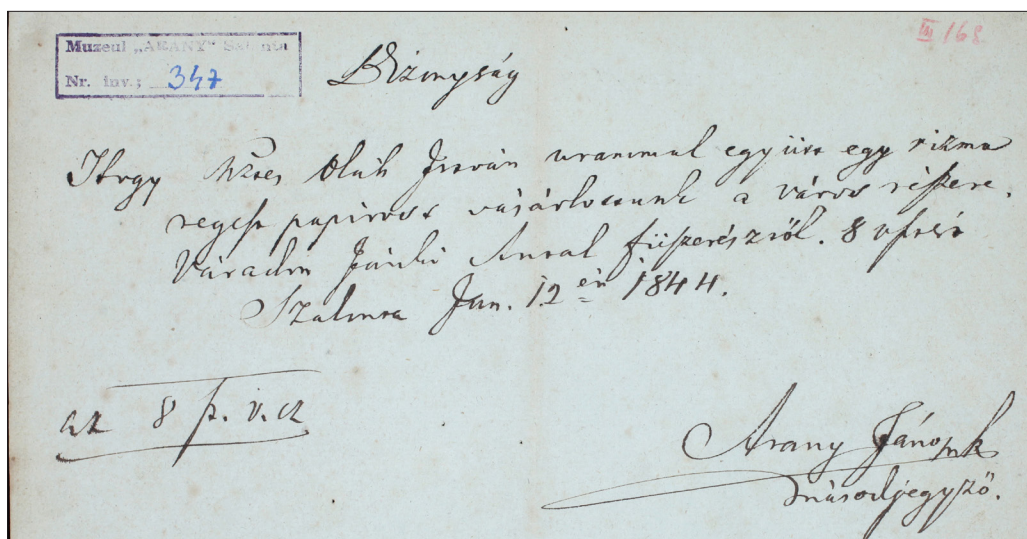 Muzeul „ARANY” Salonta
Nr. inv.; 347
168
Bizonyság
Hogy Oláh István urammal együtt egy rizma
regest papirost vásárlottunk a város részére.
Váradon Jánki Antal fűszerésztől. 8 vfrért
Szalonta Jan. 12én 1844.
az 8 f. v. cz
Arany János mk
másodjegyző.